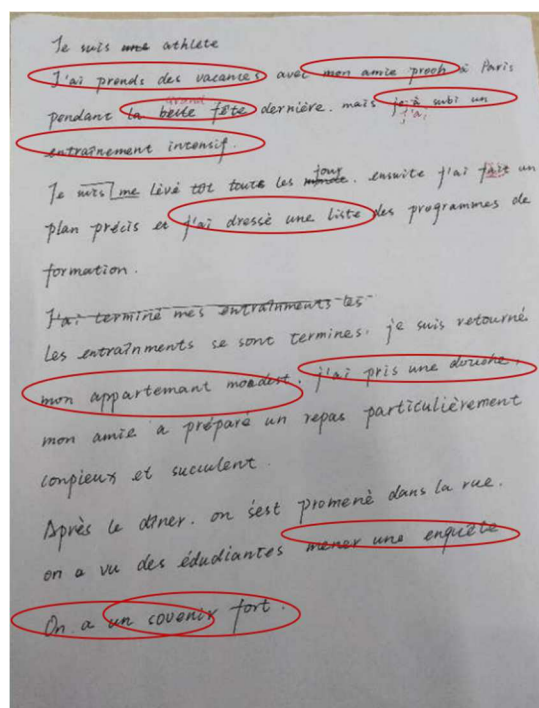 Je suis une athlète
J'ai prends des vacances avec mon amie proch à Paris
pendant la belle fête dernière. mais je à subi un
grand
j'ai
entraînement intensif.
Je suis me lévé tôt touts les monde. ensuite j'ai fait un
jour
plan précis et j'ai dressé une liste des programmes de
formation.
J'ai terminé mes entraînments les
Les entraînments se sont termines. je suis retourné
mon appartemant moedest. j'ai pris une douche.
mon amie a préparé un repas particulièrement
conpieux et succulent.
Après le dîner. on s'est promené dans la rue.
on a vu des édudiantes mener une enquête
On a un souvenir fort.